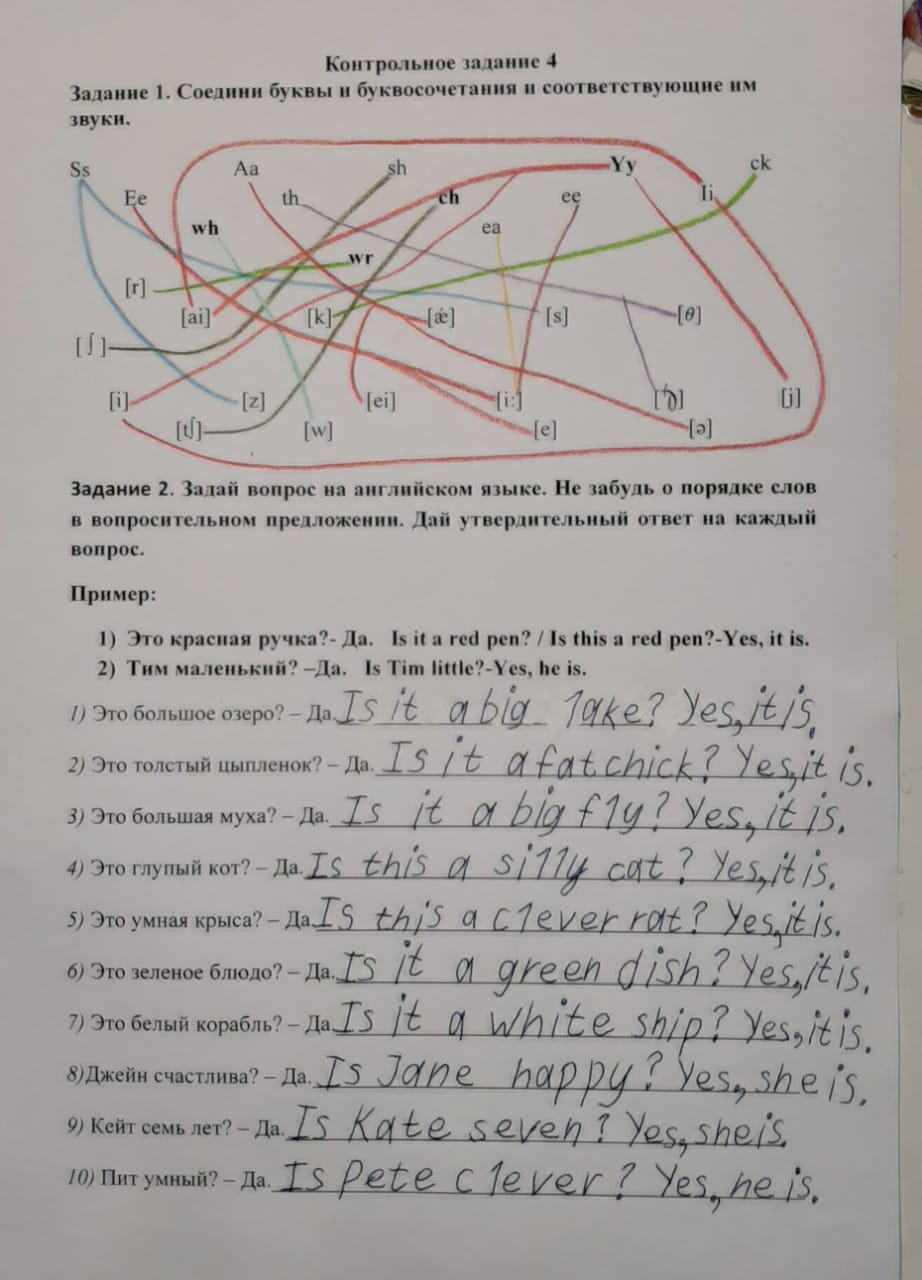 Контрольное задание 4
Задание 1. Соедини буквы и буквосочетания и соответствующие им
звуки.
Ss Aa sh Yy ck
Ee th ch ee Ii
wh ea
wr
[r]
[ai] [k] [ǽ] [s] [θ]
[ʃ]
[i] [z] [ei] [i:] [ð] [j]
[tʃ] [w] [e] [ə]
Задание 2. Задай вопрос на английском языке. Не забудь о порядке слов
в вопросительном предложении. Дай утвердительный ответ на каждый
вопрос.
Пример:
1) Это красная ручка?- Да. Is it a red pen? / Is this a red pen?-Yes, it is.
2) Тим маленький? –Да. Is Tim little?-Yes, he is.
1) Это большое озеро? – Да. Is it a big lake? Yes, it is.
2) Это толстый цыпленок? – Да. Is it a fat chick? Yes, it is.
3) Это большая муха? – Да. Is it a big fly? Yes, it is.
4) Это глупый кот? – Да. Is this a silly cat? Yes, it is.
5) Это умная крыса? – Да. Is this a clever rat? Yes, it is.
6) Это зеленое блюдо? – Да. Is it a green dish? Yes, it is.
7) Это белый корабль? – Да. Is it a white ship? Yes, it is.
8)Джейн счастлива? – Да. Is Jane happy? Yes, she is.
9) Кейт семь лет? – Да. Is Kate seven? Yes, she is.
10) Пит умный? – Да. Is Pete clever? Yes, he is.